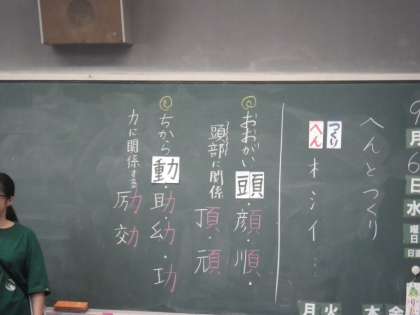 9月6日水曜日
日直
へんとつくり
つくり
へん
木氵イ…
◎おおがい
頭・顔・順・
頭部に関係
頂・頑
◎ちから
動・助・幼・功
力に関係する
励効
月火
木金